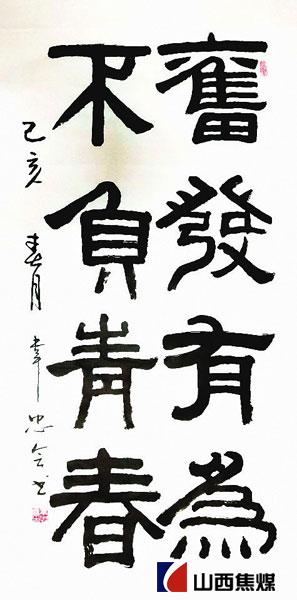 奮發有為
不負青春
己亥 春月 韋忠會书
山西焦煤